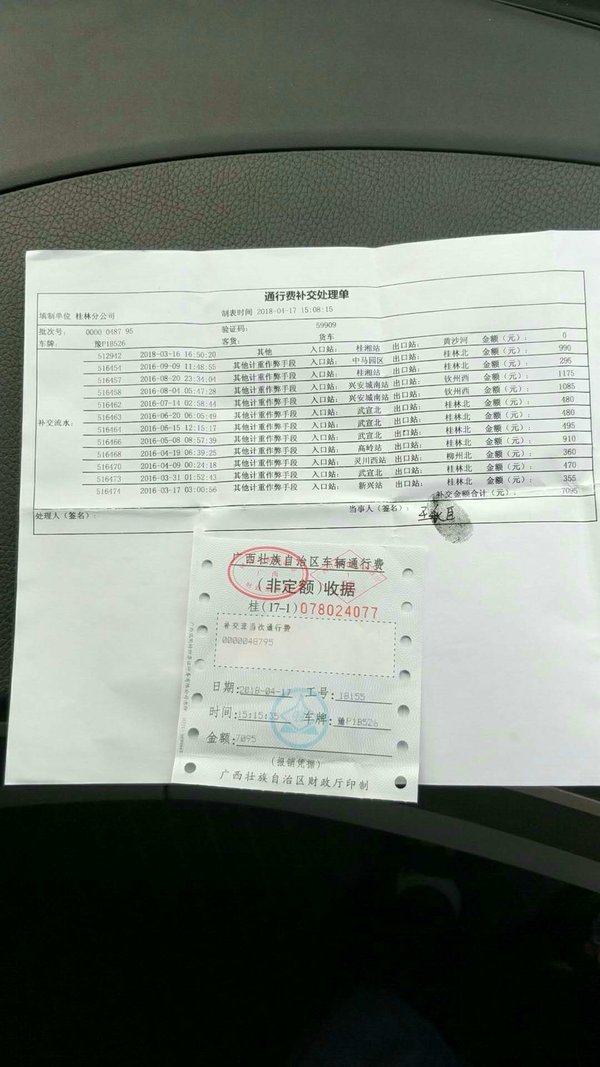 通行费补交处理单
填制单位 桂林分公司 制表时间 2018-04-17 15:08:15
批次号: 0000 0487 95 验证码: 59909
车牌: 豫P1B526 客货: 货车
补交流水:
512942 2018-03-16 16:50:20 其他 入口站: 桂湘站 出口站: 黄沙河 金额(元): 0
516454 2016-09-09 11:48:55 其他计重作弊手段 入口站: 中马园区 出口站: 桂林北 金额(元): 990
516457 2016-08-20 23:34:04 其他计重作弊手段 入口站: 兴安城南站 出口站: 桂林北 金额(元): 295
516458 2016-08-04 05:47:28 其他计重作弊手段 入口站: 兴安城南站 出口站: 钦州西 金额(元): 1175
516462 2016-07-14 02:58:44 其他计重作弊手段 入口站: 武宣北 出口站: 钦州西 金额(元): 1085
516463 2016-06-20 06:05:49 其他计重作弊手段 入口站: 武宣北 出口站: 桂林北 金额(元): 480
516464 2016-06-15 12:15:17 其他计重作弊手段 入口站: 武宣北 出口站: 桂林北 金额(元): 480
516466 2016-05-08 08:57:39 其他计重作弊手段 入口站: 高岭站 出口站: 桂林北 金额(元): 495
516468 2016-04-19 06:39:25 其他计重作弊手段 入口站: 灵川西站 出口站: 桂林北 金额(元): 910
516470 2016-04-09 00:24:18 其他计重作弊手段 入口站: 武宣北 出口站: 柳州北 金额(元): 360
516473 2016-03-31 01:52:43 其他计重作弊手段 入口站: 新兴站 出口站: 桂林北 金额(元): 470
516474 2016-03-17 03:00:56 其他计重作弊手段 入口站: 出口站: 桂林北 金额(元): 355
补交金额合计(元): 7095
处理人(签名): 当事人(签名):
广西壮族自治区车辆通行费
(非定额)收据
桂(17-1)078024077
补交并当次通行费
0000048795
日期:2018-04-17 工号:18155
时间:15:15:35 车牌:豫P1B526
金额:7095
(报销凭据)
广西壮族自治区财政厅印制